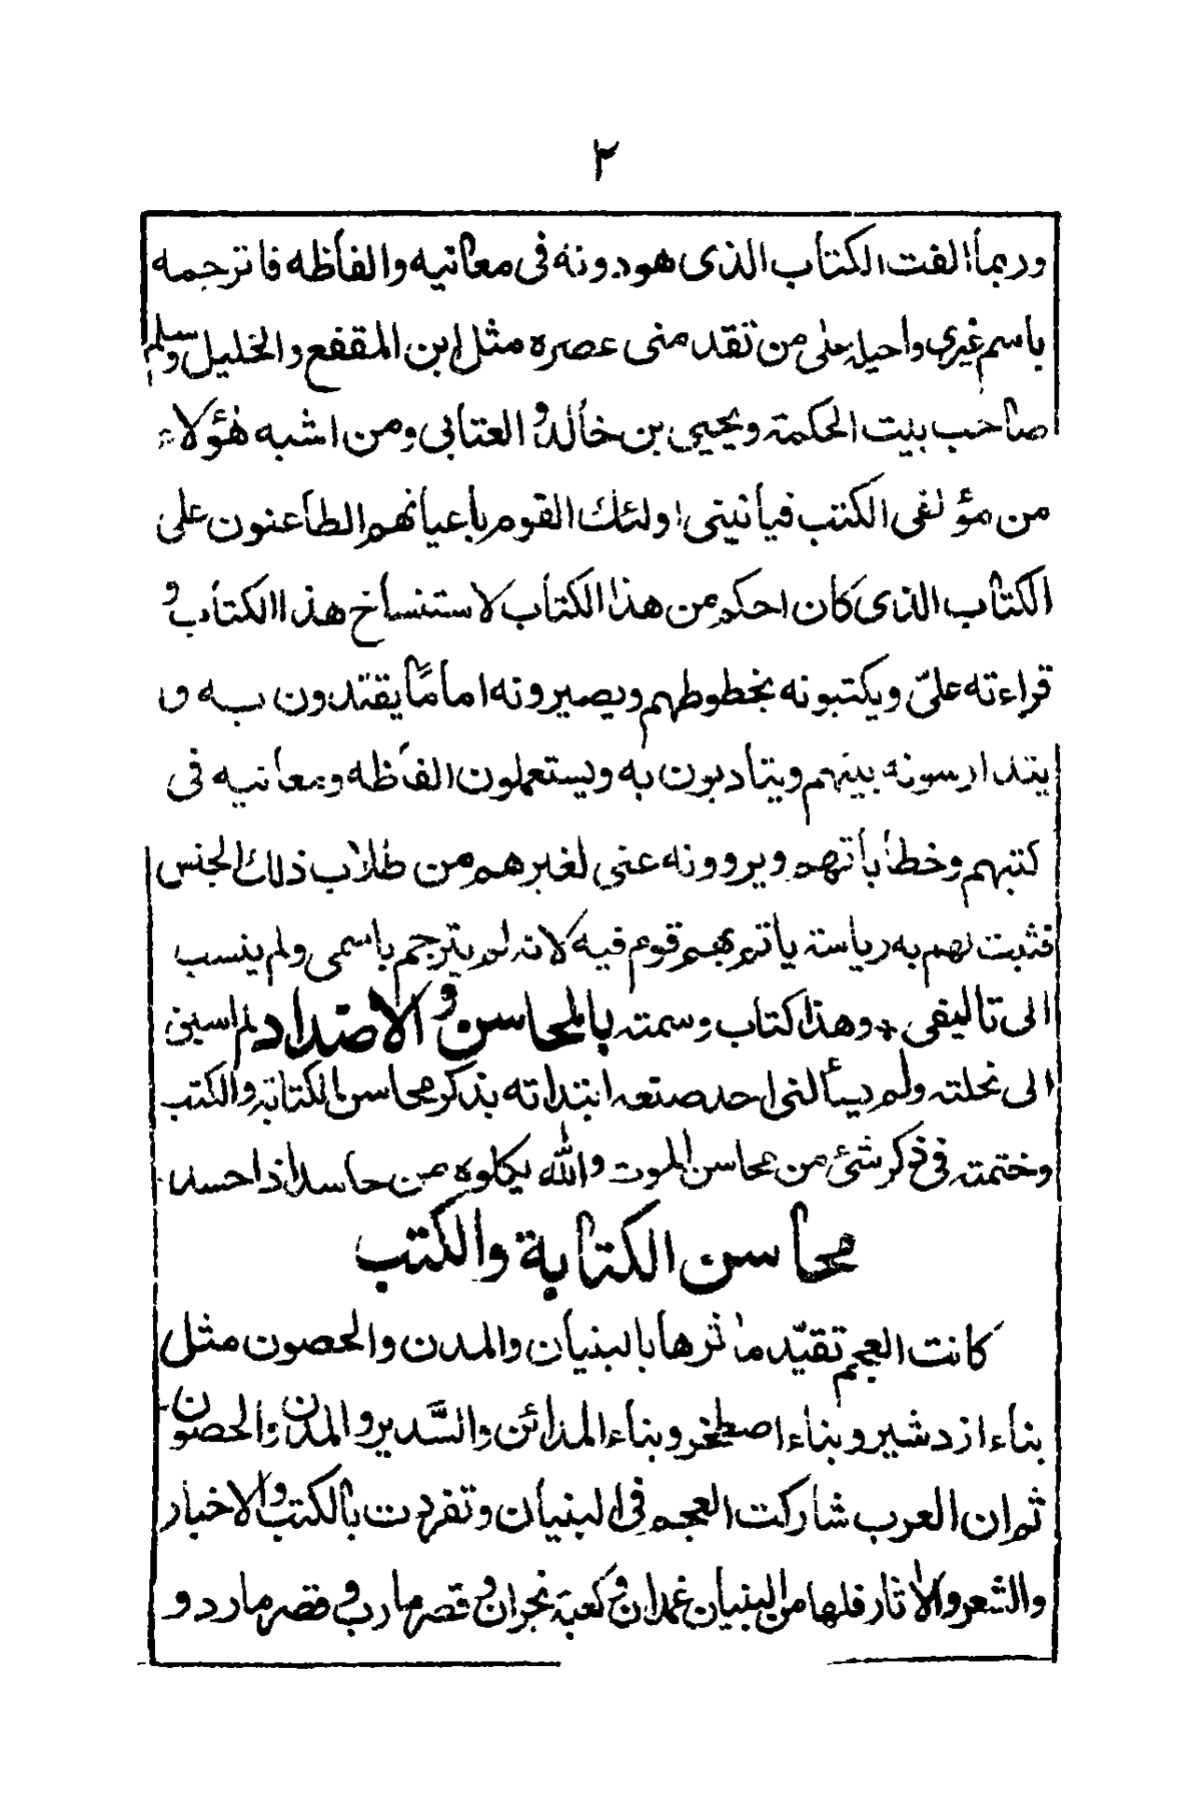 ٢
وربما الفت الكتاب الذى هو دونه فى معانيه والفاظه فاترجمه
باسم غيرى واحيله على من تقدمنى عصره مثل ابن المقفع والخليل وسلم
صاحب بيت الحكمة ويحيى بن خالد والعتابى ومن اشبه هؤلاء
من مؤلفى الكتب فيأتينى اولئك القوم باعيانهم الطاعنون على
الكتاب الذى كان احكم من هذا الكتاب لاستنساخ هذا الكتاب و
قراءته علىّ ويكتبونه بخطوطهم ويصيرونه اماماً يقتدون به و
يتدارسونه بينهم ويتادبون به ويستعملون الفاظه ومعانيه فى
كتبهم وخطاباتهم ويروونه عنى لغيرهم من طلاب ذلك الجنس
فثبت لهم به رياسة ياتم بهم قوم فيه لانه لم يترجم باسمى ولم ينسب
الى تاليفى * وهذا كتاب وسمته بالمحاسن والاضداد لم اسبق
الى نحلته ولم يسألنى احد صنعه ابتداته بذكر محاسن الكتابة والكتب
وختمته فى ذكر شئ من محاسن الموت والله يكلوه من حاسد اذا حسد
محاسن الكتابة والكتب
كانت العجم تقيّد ماثرها بالبنيان والمدن والحصون مثل
بناء ازدشير وبناء اصطخر وبناء المدائن والسَّدير والمدن والحصون
ثم ان العرب شاركت العجم فى البنيان وتفردت بالكتب والاخبار
والشعر والاثار فلها من البنيان غمدان وكعبة نجران وقصر مارب وقصر مارد و